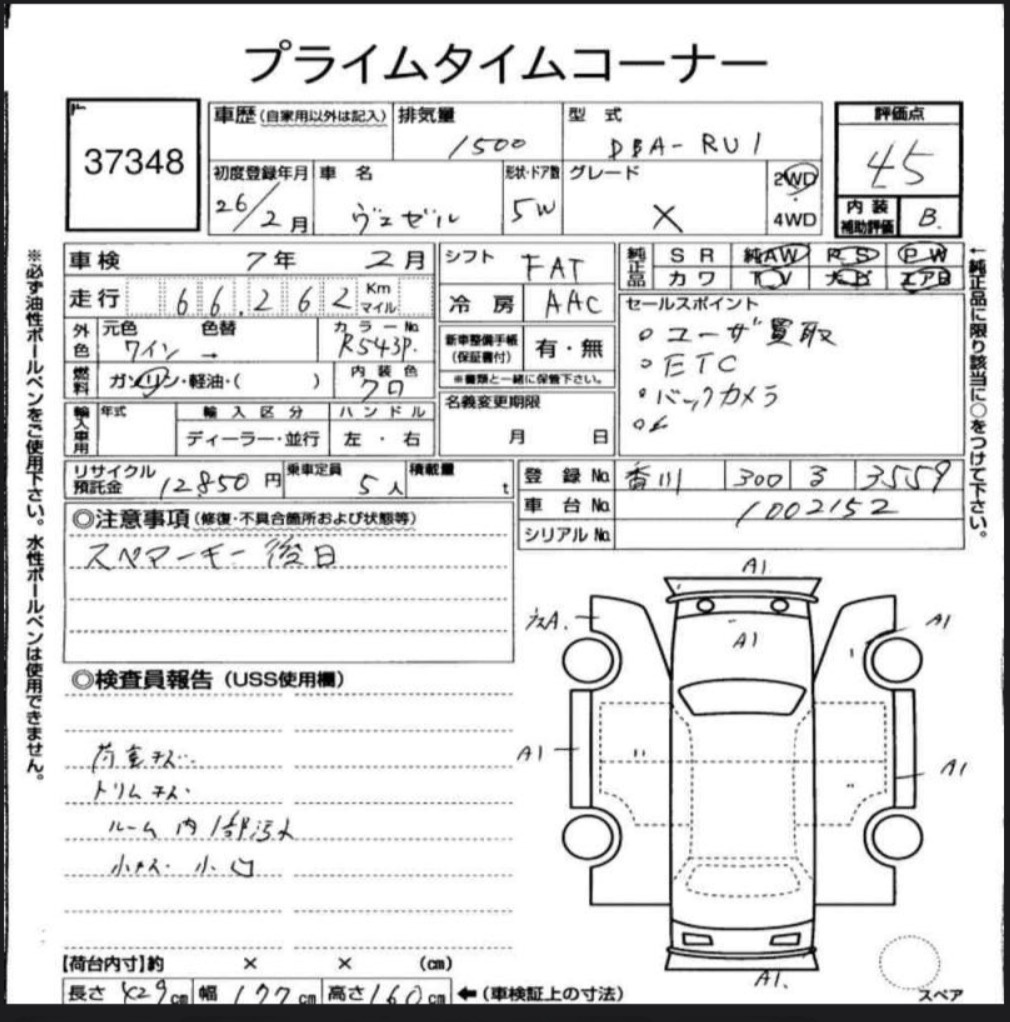 プライムタイムコーナー
37348
車歴(自家用以外は記入)
排気量
1500
型 式
DBA-RU1
評価点
45
初度登録年月
26/2月
車 名
ヴェゼル
形状・ドア数
5W
グレード
X
2WD
4WD
内装補助評価
B.
車検 7年 2月
走行 66,262 Km マイル
外色
元色
ワイン
色替
→
カラーNo.
R543P.
燃料
ガソリン・軽油・( )
内装色
クロ
輸入車用
年式
輸入区分
ディーラー・並行
ハンドル
左・右
シフト
FAT
冷房
AAC
新車整備手帳(保証書付)
有・無
※書類と一緒に保管下さい。
名義変更期限
月 日
純正品
SR
純AW
RS
PW
カワ
TV
エアB
セールスポイント
○ユーザ買取
○ETC
○バックカメラ
←純正品に限り該当に○をつけて下さい。
※必ず油性ボールペンをご使用下さい。水性ボールペンは使用できません。
リサイクル預託金
12,850円
乗車定員
5人
積載量
t
登録No. 香川 300 ろ 3559
車台No. 1002152
シリアルNo.
◎注意事項(修復・不具合箇所および状態等)
スペアーキー後日
◎検査員報告(USS使用欄)
荷室キズ..
トリムキズ.
ルーム内1部汚れ
小キズ. 小凹
A1
A1
A1
A1
A1
A1.
【荷台内寸】約 × × (cm)
長さ429cm
幅177cm
高さ160cm
←(車検証上の寸法)
スペア